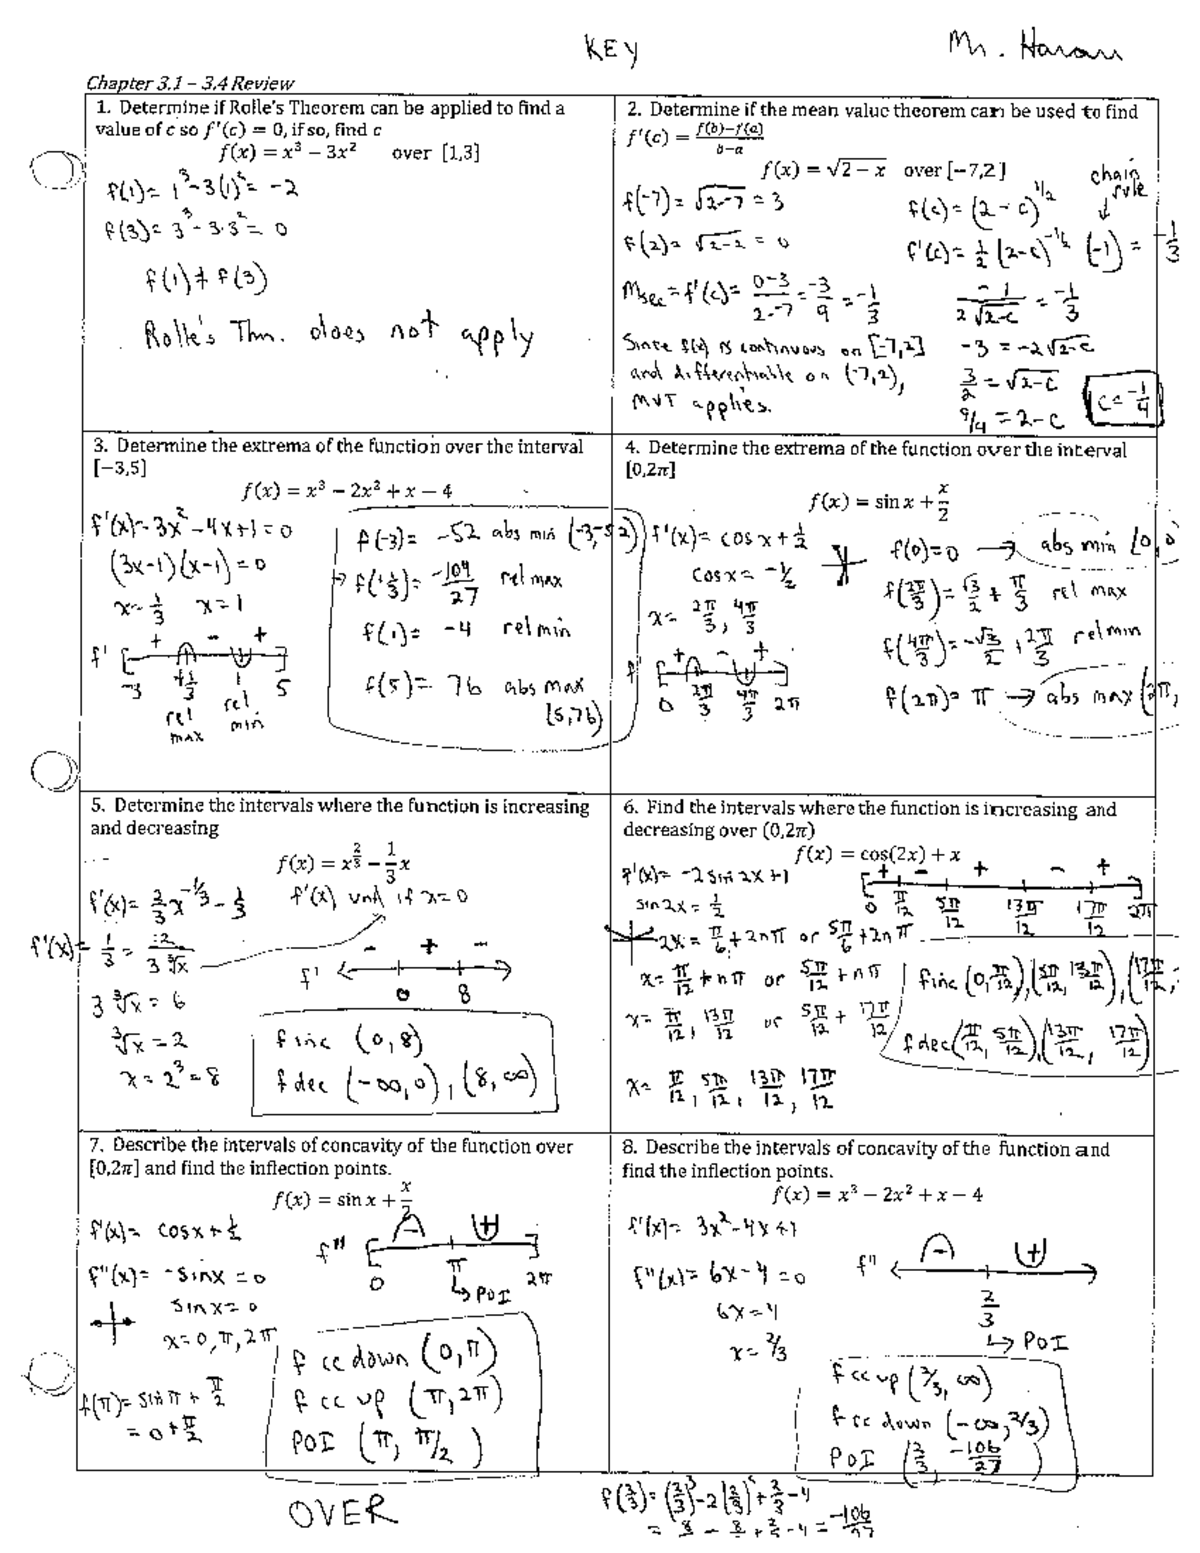 KEY
Mr. Haran
Chapter 3.1 – 3.4 Review
1. Determine if Rolle's Theorem can be applied to find a
value of c so f'(c) = 0, if so, find c
f(x) = x³ − 3x² over [1,3]
f(1) = 1³ - 3(1)² = -2
f(3) = 3³ - 3·3² = 0
f(1) ≠ f(3)
Rolle's Thm. does not apply
2. Determine if the mean value theorem can be used to find
f'(c) = f(b)−f(a) / b−a
f(x) = √2 − x over [−7,2]
f(-7) = √2--7 = 3
f(2) = √2-2 = 0
Msec = f'(c) = 0-3 / 2--7 = -3/9 = -1/3
Since f(x) is continuous on [-7,2]
and differentiable on (-7,2),
MVT applies.
chain
rule
f(c) = (2-c)^1/2
f'(c) = 1/2 (2-c)^-1/2 (-1) = -1/3
-1 / 2√2-c = -1/3
-3 = -2√2-c
3/2 = √2-c
9/4 = 2-c
c = -1/4
3. Determine the extrema of the function over the interval
[−3,5]
f(x) = x³ − 2x² + x − 4
f'(x) = 3x² - 4x + 1 = 0
(3x-1)(x-1) = 0
x = 1/3 x = 1
+ - +
f' [ ]
-3 1/3 1 5
rel max rel min
f(-3) = -52 abs min (-3,-52)
f(1/3) = -104/27 rel max
f(1) = -4 rel min
f(5) = 76 abs max
(5,76)
4. Determine the extrema of the function over the interval
[0,2π]
f(x) = sin x + x/2
f'(x) = cos x + 1/2
cos x = -1/2
x = 2π/3, 4π/3
+ - +
f' [ ]
0 2π/3 4π/3 2π
f(0) = 0 → abs min (0,0)
f(2π/3) = √3/2 + π/3 rel max
f(4π/3) = -√3/2 + 2π/3 rel min
f(2π) = π → abs max (2π,
5. Determine the intervals where the function is increasing
and decreasing
f(x) = x^2/3 − 1/3 x
f'(x) = 2/3 x^-1/3 - 1/3
f'(x) und if x = 0
f'(x) = 1/3 = 2 / 3∛x
3∛x = 6
∛x = 2
x = 2³ = 8
- + -
f'
0 8
f inc (0,8)
f dec (-∞,0), (8,∞)
6. Find the intervals where the function is increasing and
decreasing over (0,2π)
f(x) = cos(2x) + x
f'(x) = -2 sin 2x + 1
sin 2x = 1/2
2x = π/6 + 2nπ or 5π/6 + 2nπ
x = π/12 + nπ or 5π/12 + nπ
x = π/12, 13π/12 or 5π/12 + 17π/12
x = π/12, 5π/12, 13π/12, 17π/12
+ - + - +
0 π/12 5π/12 13π/12 17π/12 2π
f inc (0, π/12), (5π/12, 13π/12), (17π/12,
f dec (π/12, 5π/12), (13π/12, 17π/12)
7. Describe the intervals of concavity of the function over
[0,2π] and find the inflection points.
f(x) = sin x + x/2
f'(x) = cos x + 1/2
f''(x) = -sin x = 0
sin x = 0
x = 0, π, 2π
f(π) = sin π + π/2
= 0 + π/2
f'' - +
0 π 2π
↳ POI
f cc down (0,π)
f cc up (π,2π)
POI (π, π/2)
8. Describe the intervals of concavity of the function and
find the inflection points.
f(x) = x³ − 2x² + x − 4
f'(x) = 3x² - 4x + 1
f''(x) = 6x - 4 = 0
6x = 4
x = 2/3
f'' - +
2/3
↳ POI
f cc up (2/3, ∞)
f cc down (-∞, 2/3)
POI (2/3, -106/27)
OVER
f(2/3) = (2/3)³ - 2(2/3)² + 2/3 - 4